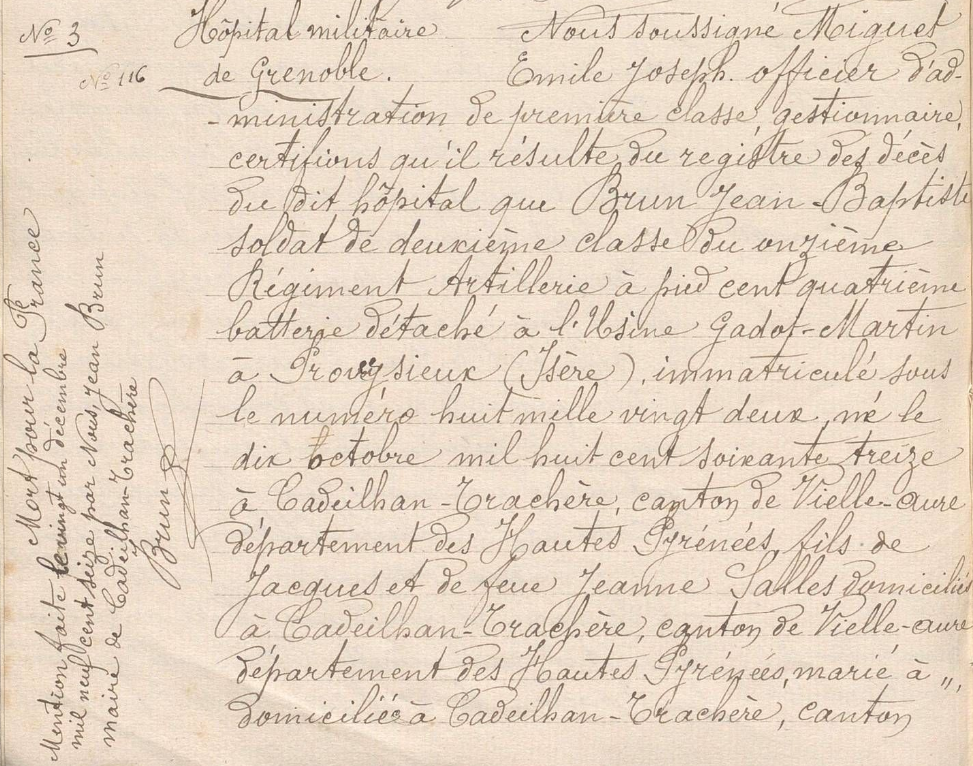 Nº 3
Nº 116
Hôpital militaire
de Grenoble.
Nous soussigné Miguet
Emile Joseph. officier d'ad-
-ministration de première classe, gestionnaire,
certifions qu'il résulte du registre des décès
du dit hôpital que Brun Jean-Baptiste
soldat de deuxième classe du onzième
Régiment Artillerie à pied cent quatrième
batterie détaché à l'Usine Gadot-Martin
à Proveysieux (Isère), immatriculé sous
le numéro huit mille vingt deux, né le
dix octobre mil huit cent soixante treize
à Cadeilhan-Trachère, canton de Vielle-aure
département des Hautes Pyrénées, fils de
Jacques et de feue Jeanne Salles domiciliés
à Cadeilhan-Trachère, canton de Vielle-aure
département des Hautes Pyrénées, marié à „,
domiciliés à Cadeilhan-Trachère, canton
Mort pour la France
Mention faite le vingt un décembre
mil neuf cent seize par Nous, Jean Brun
maire de Cadeilhan-Trachère
Brun